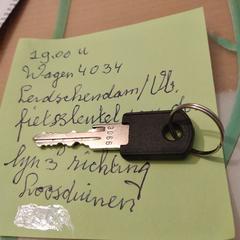 19.00 u
Wagen 4034
Leidschendam/Vb.
fietssleutel
lijn 3 richting
Loosduinen